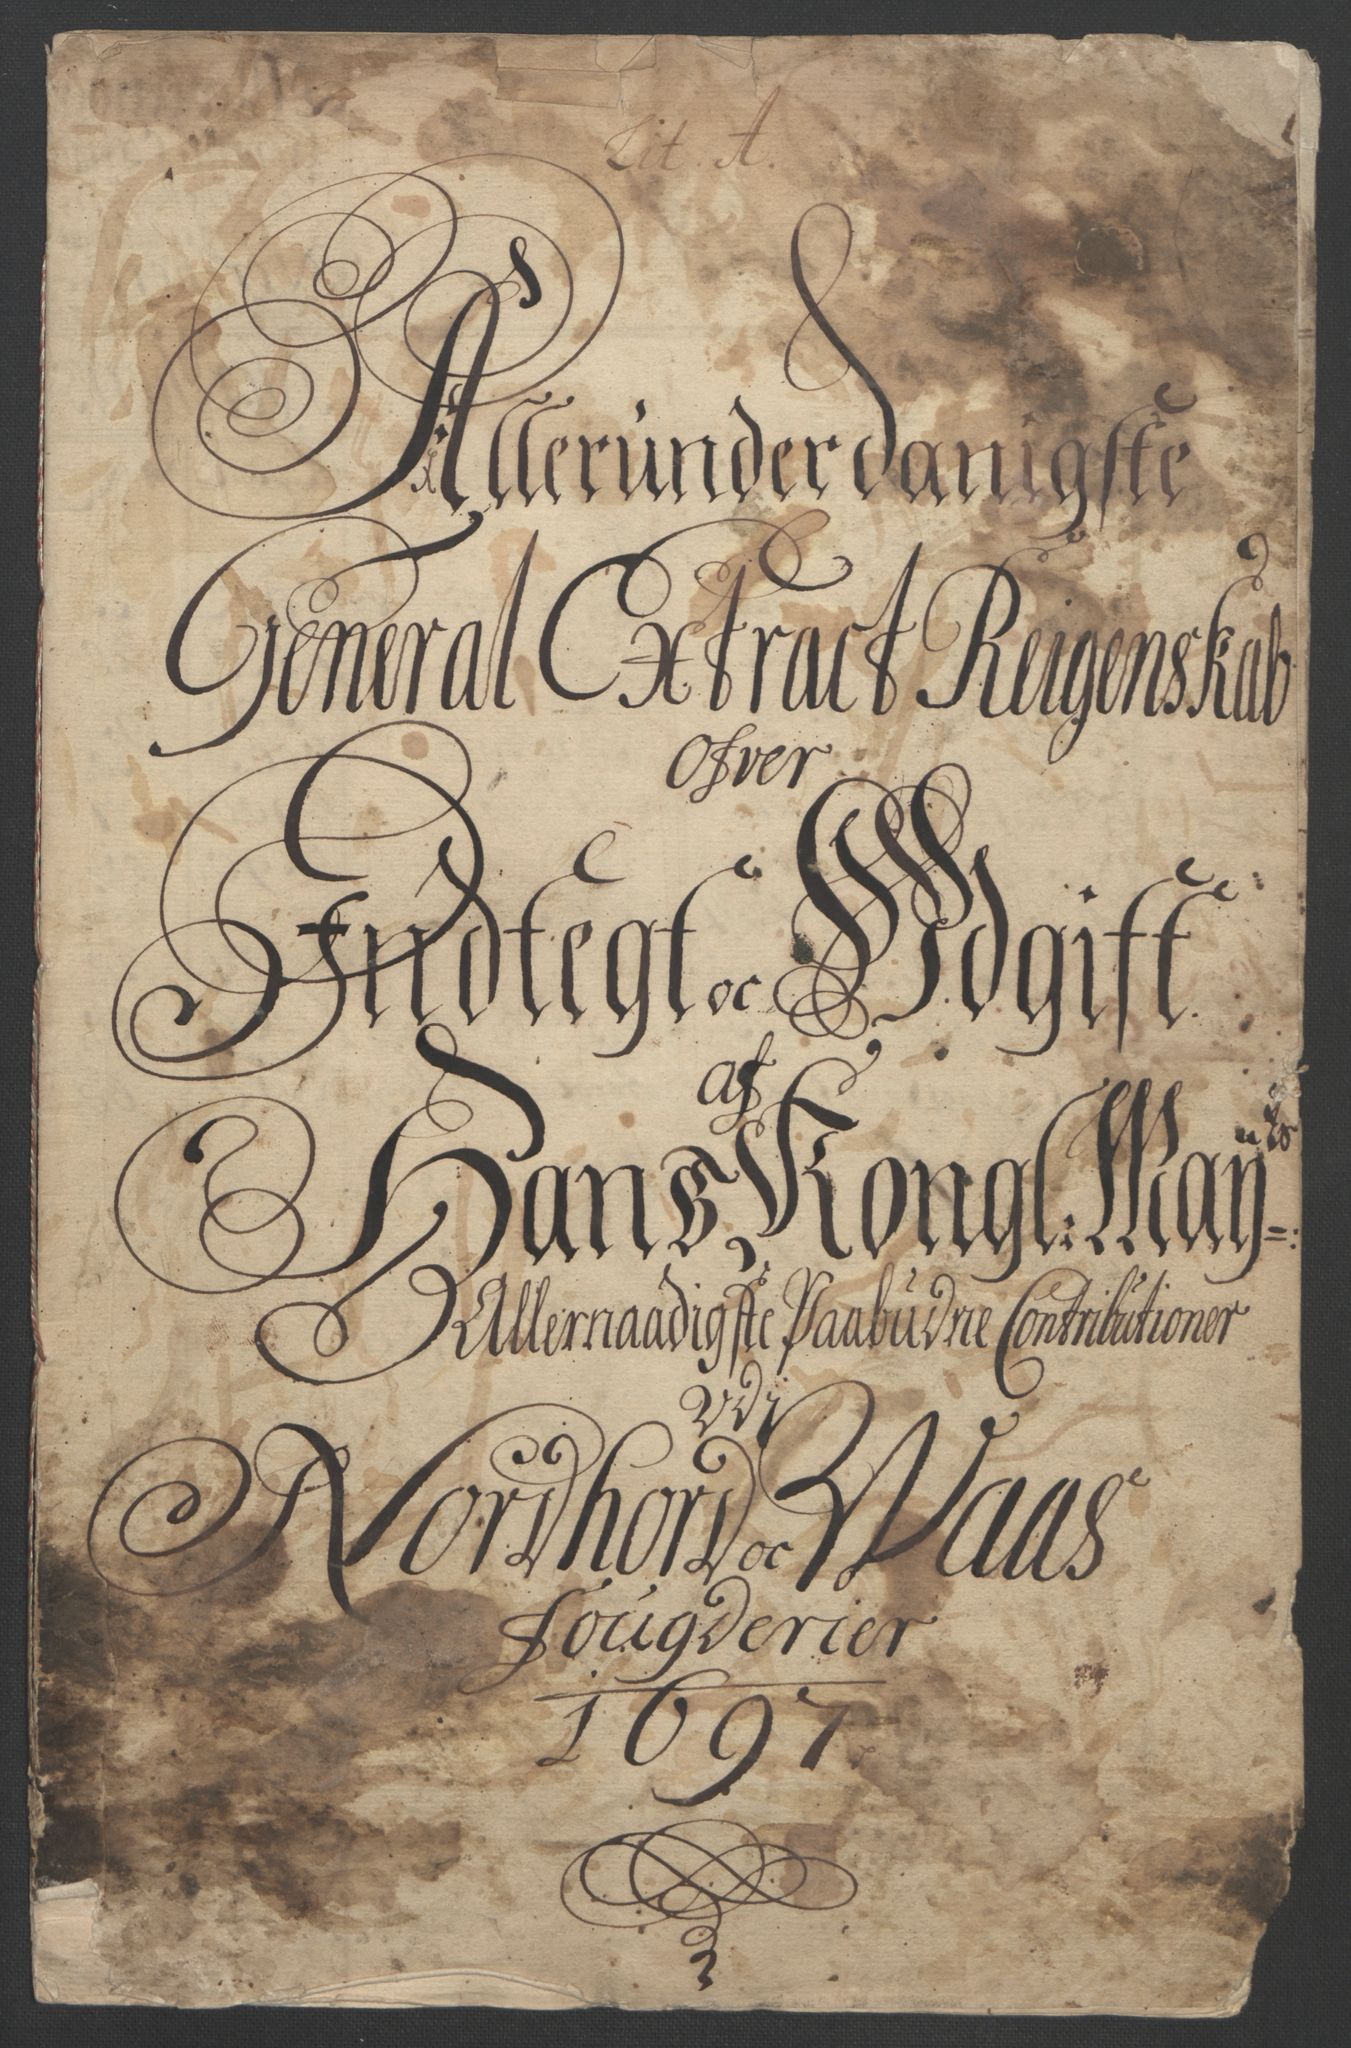 Lit. A.
Allerúnderdanigste
General Extract Reigenskab
ofver
Indtegt oc Udgift
af
Hans Kongl: Maÿ=:
Allernaadigste Paabúdne Contribútioner
udj
Nordhord oc Waas
Fougderier
1697